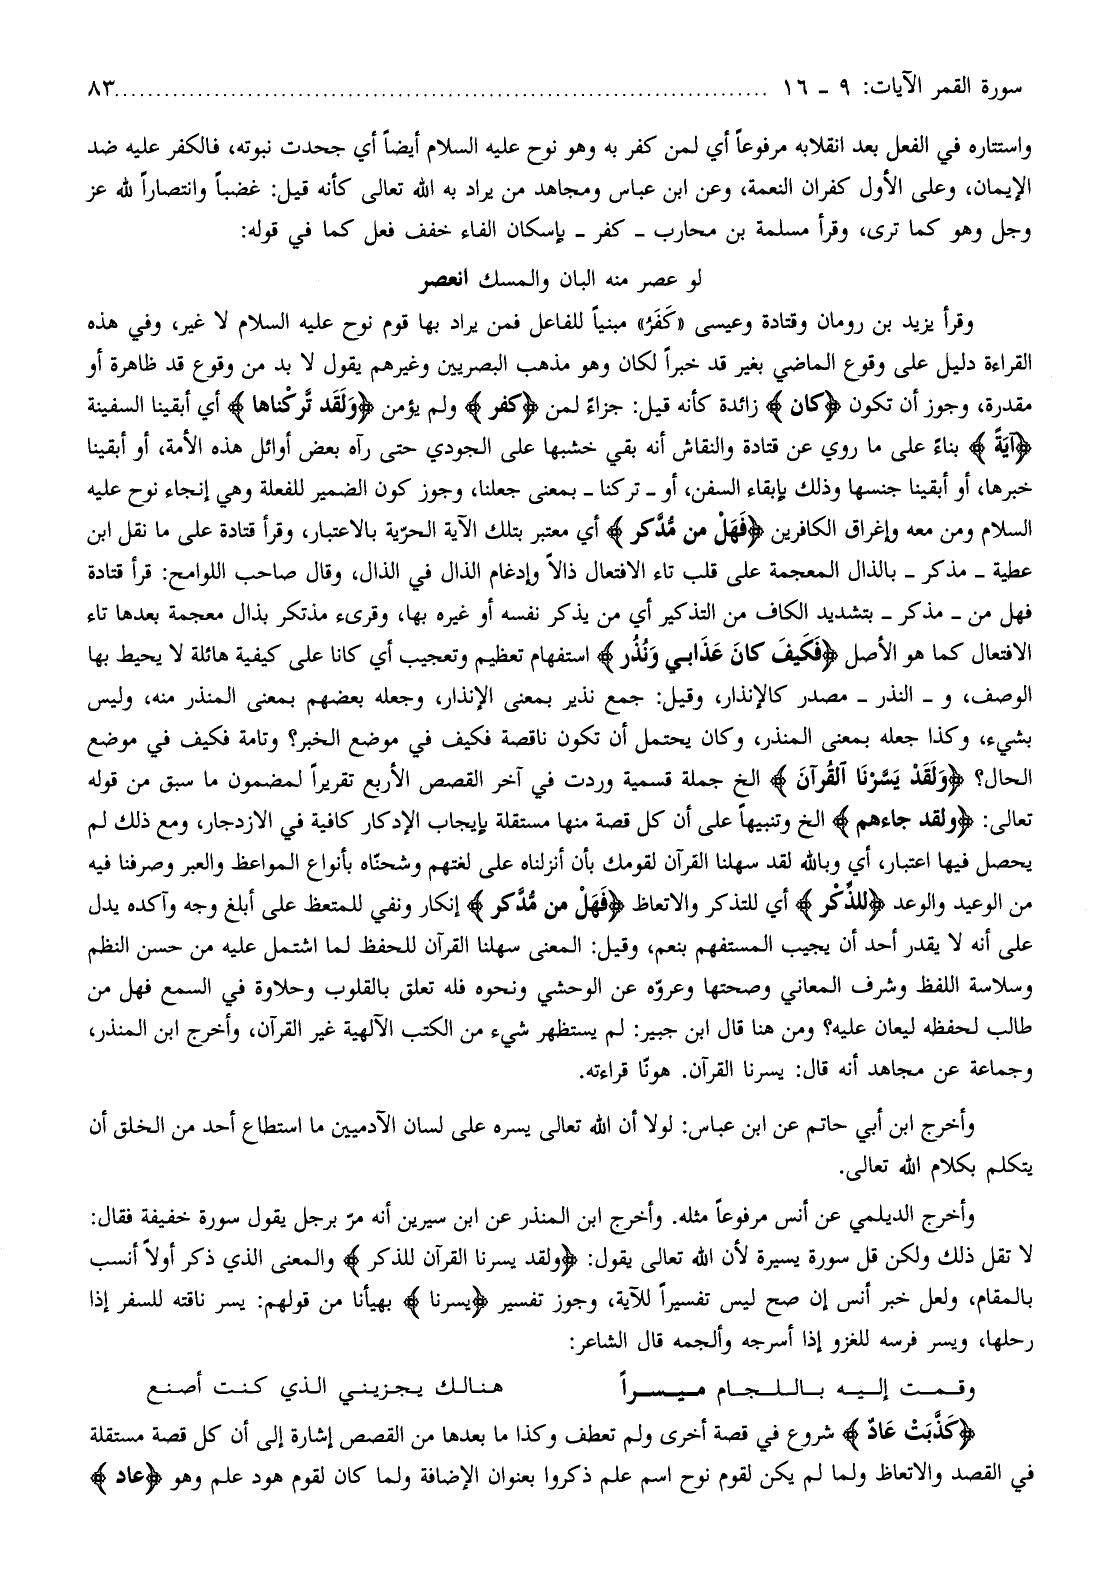 سورة القمر الآيات: ٩ ـ ١٦ ................................................................................ ٨٣
واستتاره في الفعل بعد انقلابه مرفوعاً أي لمن كفر به وهو نوح عليه السلام أيضاً أي جحدت نبوته، فالكفر عليه ضد
الإيمان، وعلى الأول كفران النعمة، وعن ابن عباس ومجاهد من يراد به الله تعالى كأنه قيل: غضباً وانتصاراً لله عز
وجل وهو كما ترى، وقرأ مسلمة بن محارب ـ كفر ـ بإسكان الفاء خفف فعل كما في قوله:
لو عصر منه البان والمسك انعصر
وقرأ يزيد بن رومان وقتادة وعيسى «كَفَرَ» مبنياً للفاعل فمن يراد بها قوم نوح عليه السلام لا غير، وفي هذه
القراءة دليل على وقوع الماضي بغير قد خبراً لكان وهو مذهب البصريين وغيرهم يقول لا بد من وقوع قد ظاهرة أو
مقدرة، وجوز أن تكون ﴿كان﴾ زائدة كأنه قيل: جزاءً لمن ﴿كفر﴾ ولم يؤمن ﴿وَلَقَد تَّرَكْناها﴾ أي أبقينا السفينة
﴿آيَةً﴾ بناءً على ما روي عن قتادة والنقاش أنه بقي خشبها على الجودي حتى رآه بعض أوائل هذه الأمة، أو أبقينا
خبرها، أو أبقينا جنسها وذلك بإبقاء السفن، أو ـ تركنا ـ بمعنى جعلنا، وجوز كون الضمير للفعلة وهي إنجاء نوح عليه
السلام ومن معه وإغراق الكافرين ﴿فَهَلْ من مُّدَّكر﴾ أي معتبر بتلك الآية الحرّية بالاعتبار، وقرأ قتادة على ما نقل ابن
عطية ـ مذكر ـ بالذال المعجمة على قلب تاء الافتعال ذالاً وإدغام الذال في الذال، وقال صاحب اللوامح: قرأ قتادة
فهل من ـ مذكر ـ بتشديد الكاف من التذكير أي من يذكر نفسه أو غيره بها، وقرىء مذتكر بذال معجمة بعدها تاء
الافتعال كما هو الأصل ﴿فَكَيفَ كانَ عَذَابـي وَنُذُر﴾ استفهام تعظيم وتعجيب أي كانا على كيفية هائلة لا يحيط بها
الوصف، و ـ النذر ـ مصدر كالإنذار، وقيل: جمع نذير بمعنى الإنذار، وجعله بعضهم بمعنى المنذر منه، وليس
بشيء، وكذا جعله بمعنى المنذر، وكان يحتمل أن تكون ناقصة فكيف في موضع الخبر؟ وتامة فكيف في موضع
الحال؟ ﴿وَلَقَدْ يَسَّرْنَا القُرآنَ﴾ الخ جملة قسمية وردت في آخر القصص الأربع تقريراً لمضمون ما سبق من قوله
تعالى: ﴿ولقد جاءهم﴾ الخ وتنبيهاً على أن كل قصة منها مستقلة بإيجاب الإدكار كافية في الازدجار، ومع ذلك لم
يحصل فيها اعتبار، أي وبالله لقد سهلنا القرآن لقومك بأن أنزلناه على لغتهم وشحنّاه بأنواع المواعظ والعبر وصرفنا فيه
من الوعيد والوعد ﴿للذِّكْر﴾ أي للتذكر والاتعاظ ﴿فَهَلْ من مُّدَّكر﴾ إنكار ونفي للمتعظ على أبلغ وجه وآكده يدل
على أنه لا يقدر أحد أن يجيب المستفهم بنعم، وقيل: المعنى سهلنا القرآن للحفظ لما اشتمل عليه من حسن النظم
وسلاسة اللفظ وشرف المعاني وصحتها وعروّه عن الوحشي ونحوه فله تعلق بالقلوب وحلاوة في السمع فهل من
طالب لحفظه ليعان عليه؟ ومن هنا قال ابن جبير: لم يستظهر شيء من الكتب الآلهية غير القرآن، وأخرج ابن المنذر،
وجماعة عن مجاهد أنه قال: يسرنا القرآن. هونّا قراءته.
وأخرج ابن أبي حاتم عن ابن عباس: لولا أن الله تعالى يسره على لسان الآدميين ما استطاع أحد من الخلق أن
يتكلم بكلام الله تعالى.
وأخرج الديلمي عن أنس مرفوعاً مثله. وأخرج ابن المنذر عن ابن سيرين أنه مرّ برجل يقول سورة خفيفة فقال:
لا تقل ذلك ولكن قل سورة يسيرة لأن الله تعالى يقول: ﴿ولقد يسرنا القرآن للذكر﴾ والمعنى الذي ذكر أولاً أنسب
بالمقام، ولعل خبر أنس إن صح ليس تفسيراً للآية، وجوز تفسير ﴿يسرنا﴾ بهيأنا من قولهم: يسر ناقته للسفر إذا
رحلها، ويسر فرسه للغزو إذا أسرجه وألجمه قال الشاعر:
وقمت إليه باللجام ميسراً هنالك يجزيني الذي كنت أصنع
﴿كَذَّبَتْ عَادٌ﴾ شروع في قصة أخرى ولم تعطف وكذا ما بعدها من القصص إشارة إلى أن كل قصة مستقلة
في القصد والاتعاظ ولما لم يكن لقوم نوح اسم علم ذكروا بعنوان الإضافة ولما كان لقوم هود علم وهو ﴿عاد﴾